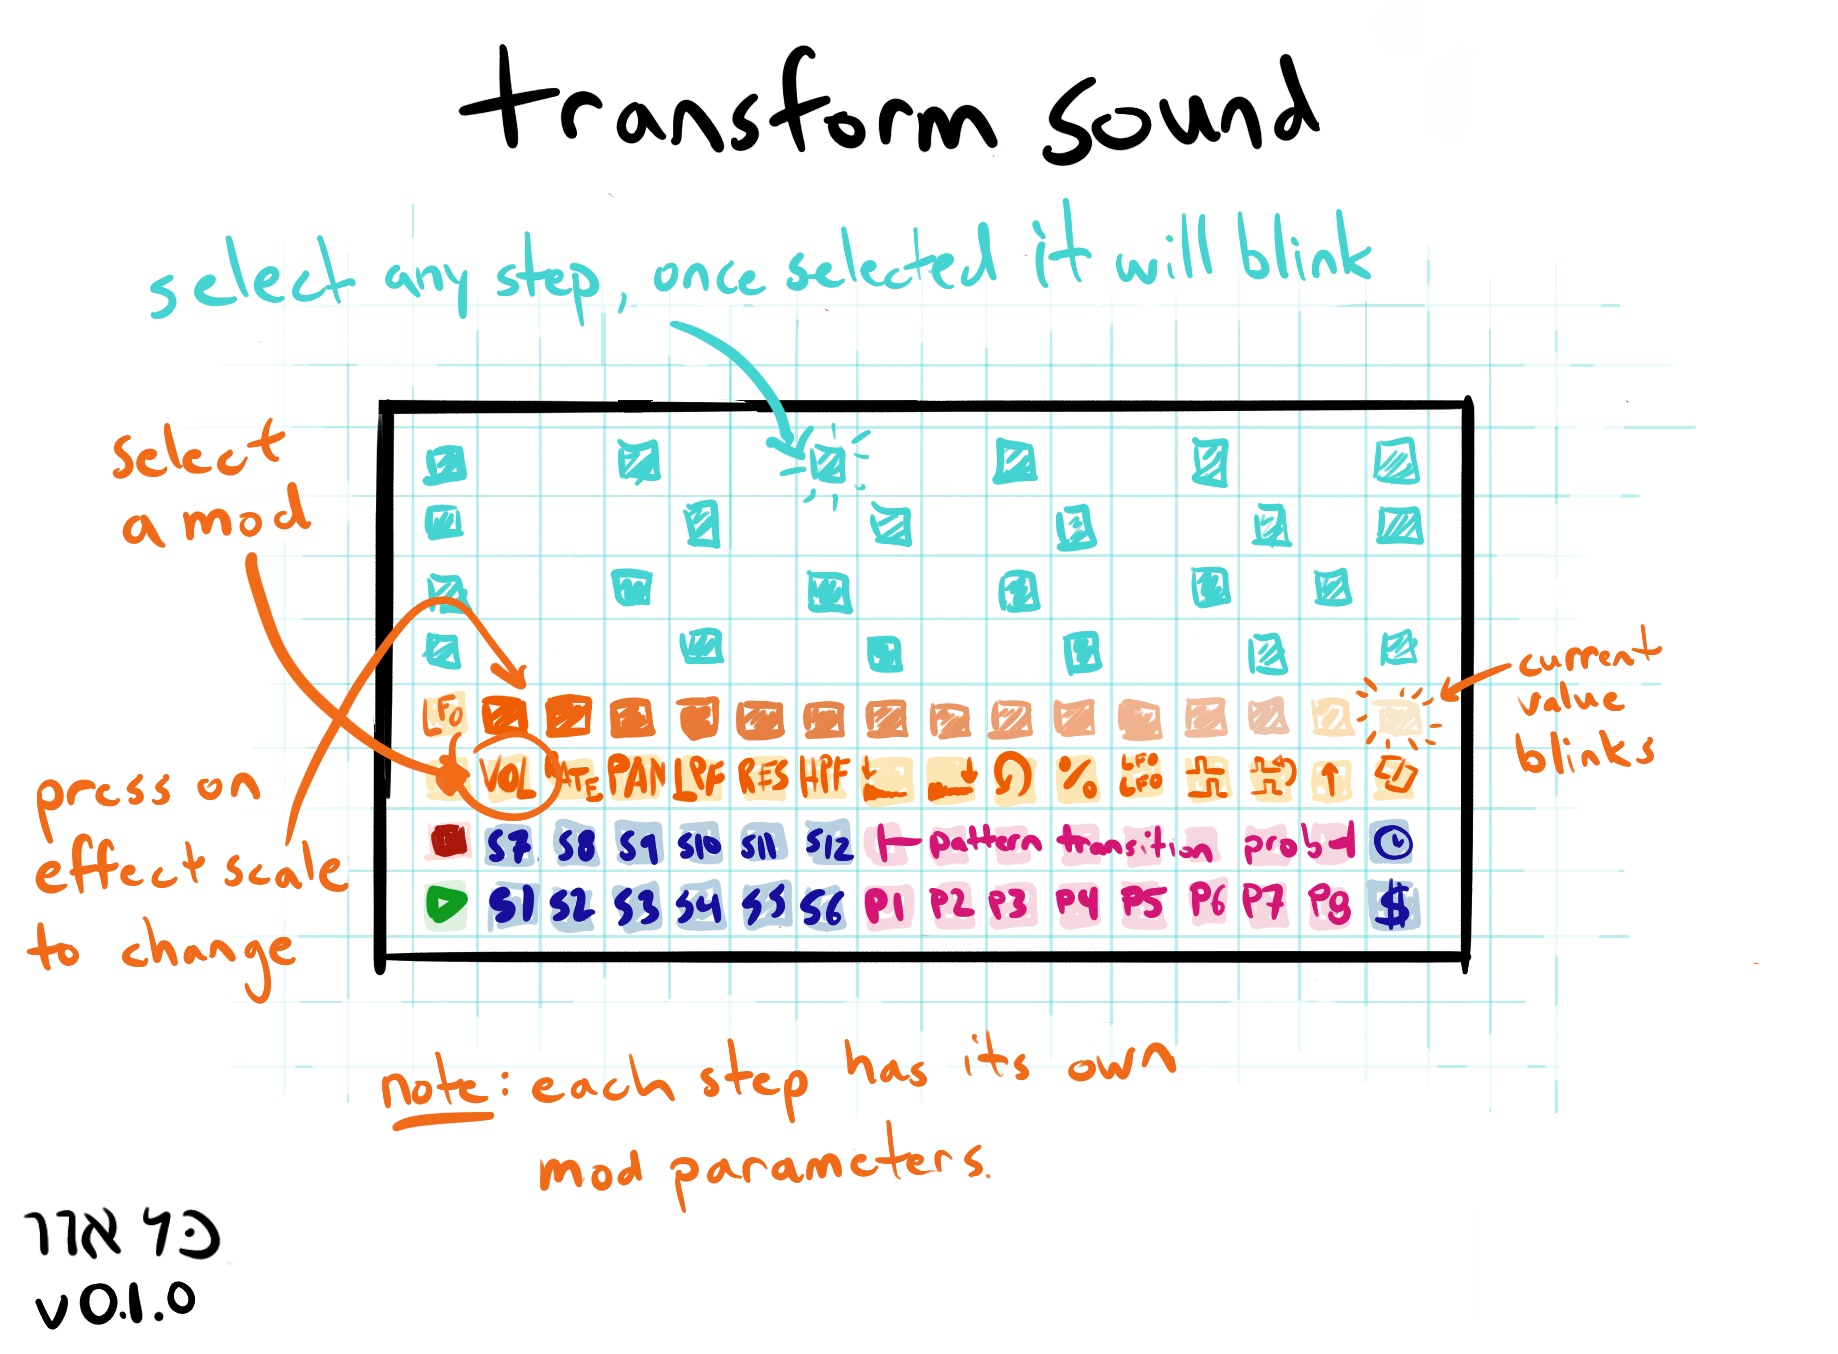 transform sound
select any step, once selected it will blink
select
a mod
press on
effect scale
to change
current
value
blinks
LFO
VOL RATE PAN LPF RES HPF % LFO LFO
S7 S8 S9 S10 S11 S12 pattern transition prob
S1 S2 S3 S4 S5 S6 P1 P2 P3 P4 P5 P6 P7 P8 $
note: each step has its own
mod parameters.
v0.1.0